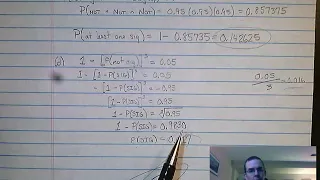 P(NOT ∩ NOT ∩ NOT) = 0.95(0.95)(0.95) = 0.857375
P(at least one sig) = 1 - 0.85735 = 0.142625
(d) 1 - [P(not sig)]³ = 0.05
1 - [1 - P(SIG)]³ = 0.05
- [1 - P(SIG)]³ = -0.95
[1 - P(SIG)]³ = 0.95
1 - P(SIG) = ∛0.95
1 - P(SIG) = 0.9830
P(SIG) =
0.05
3